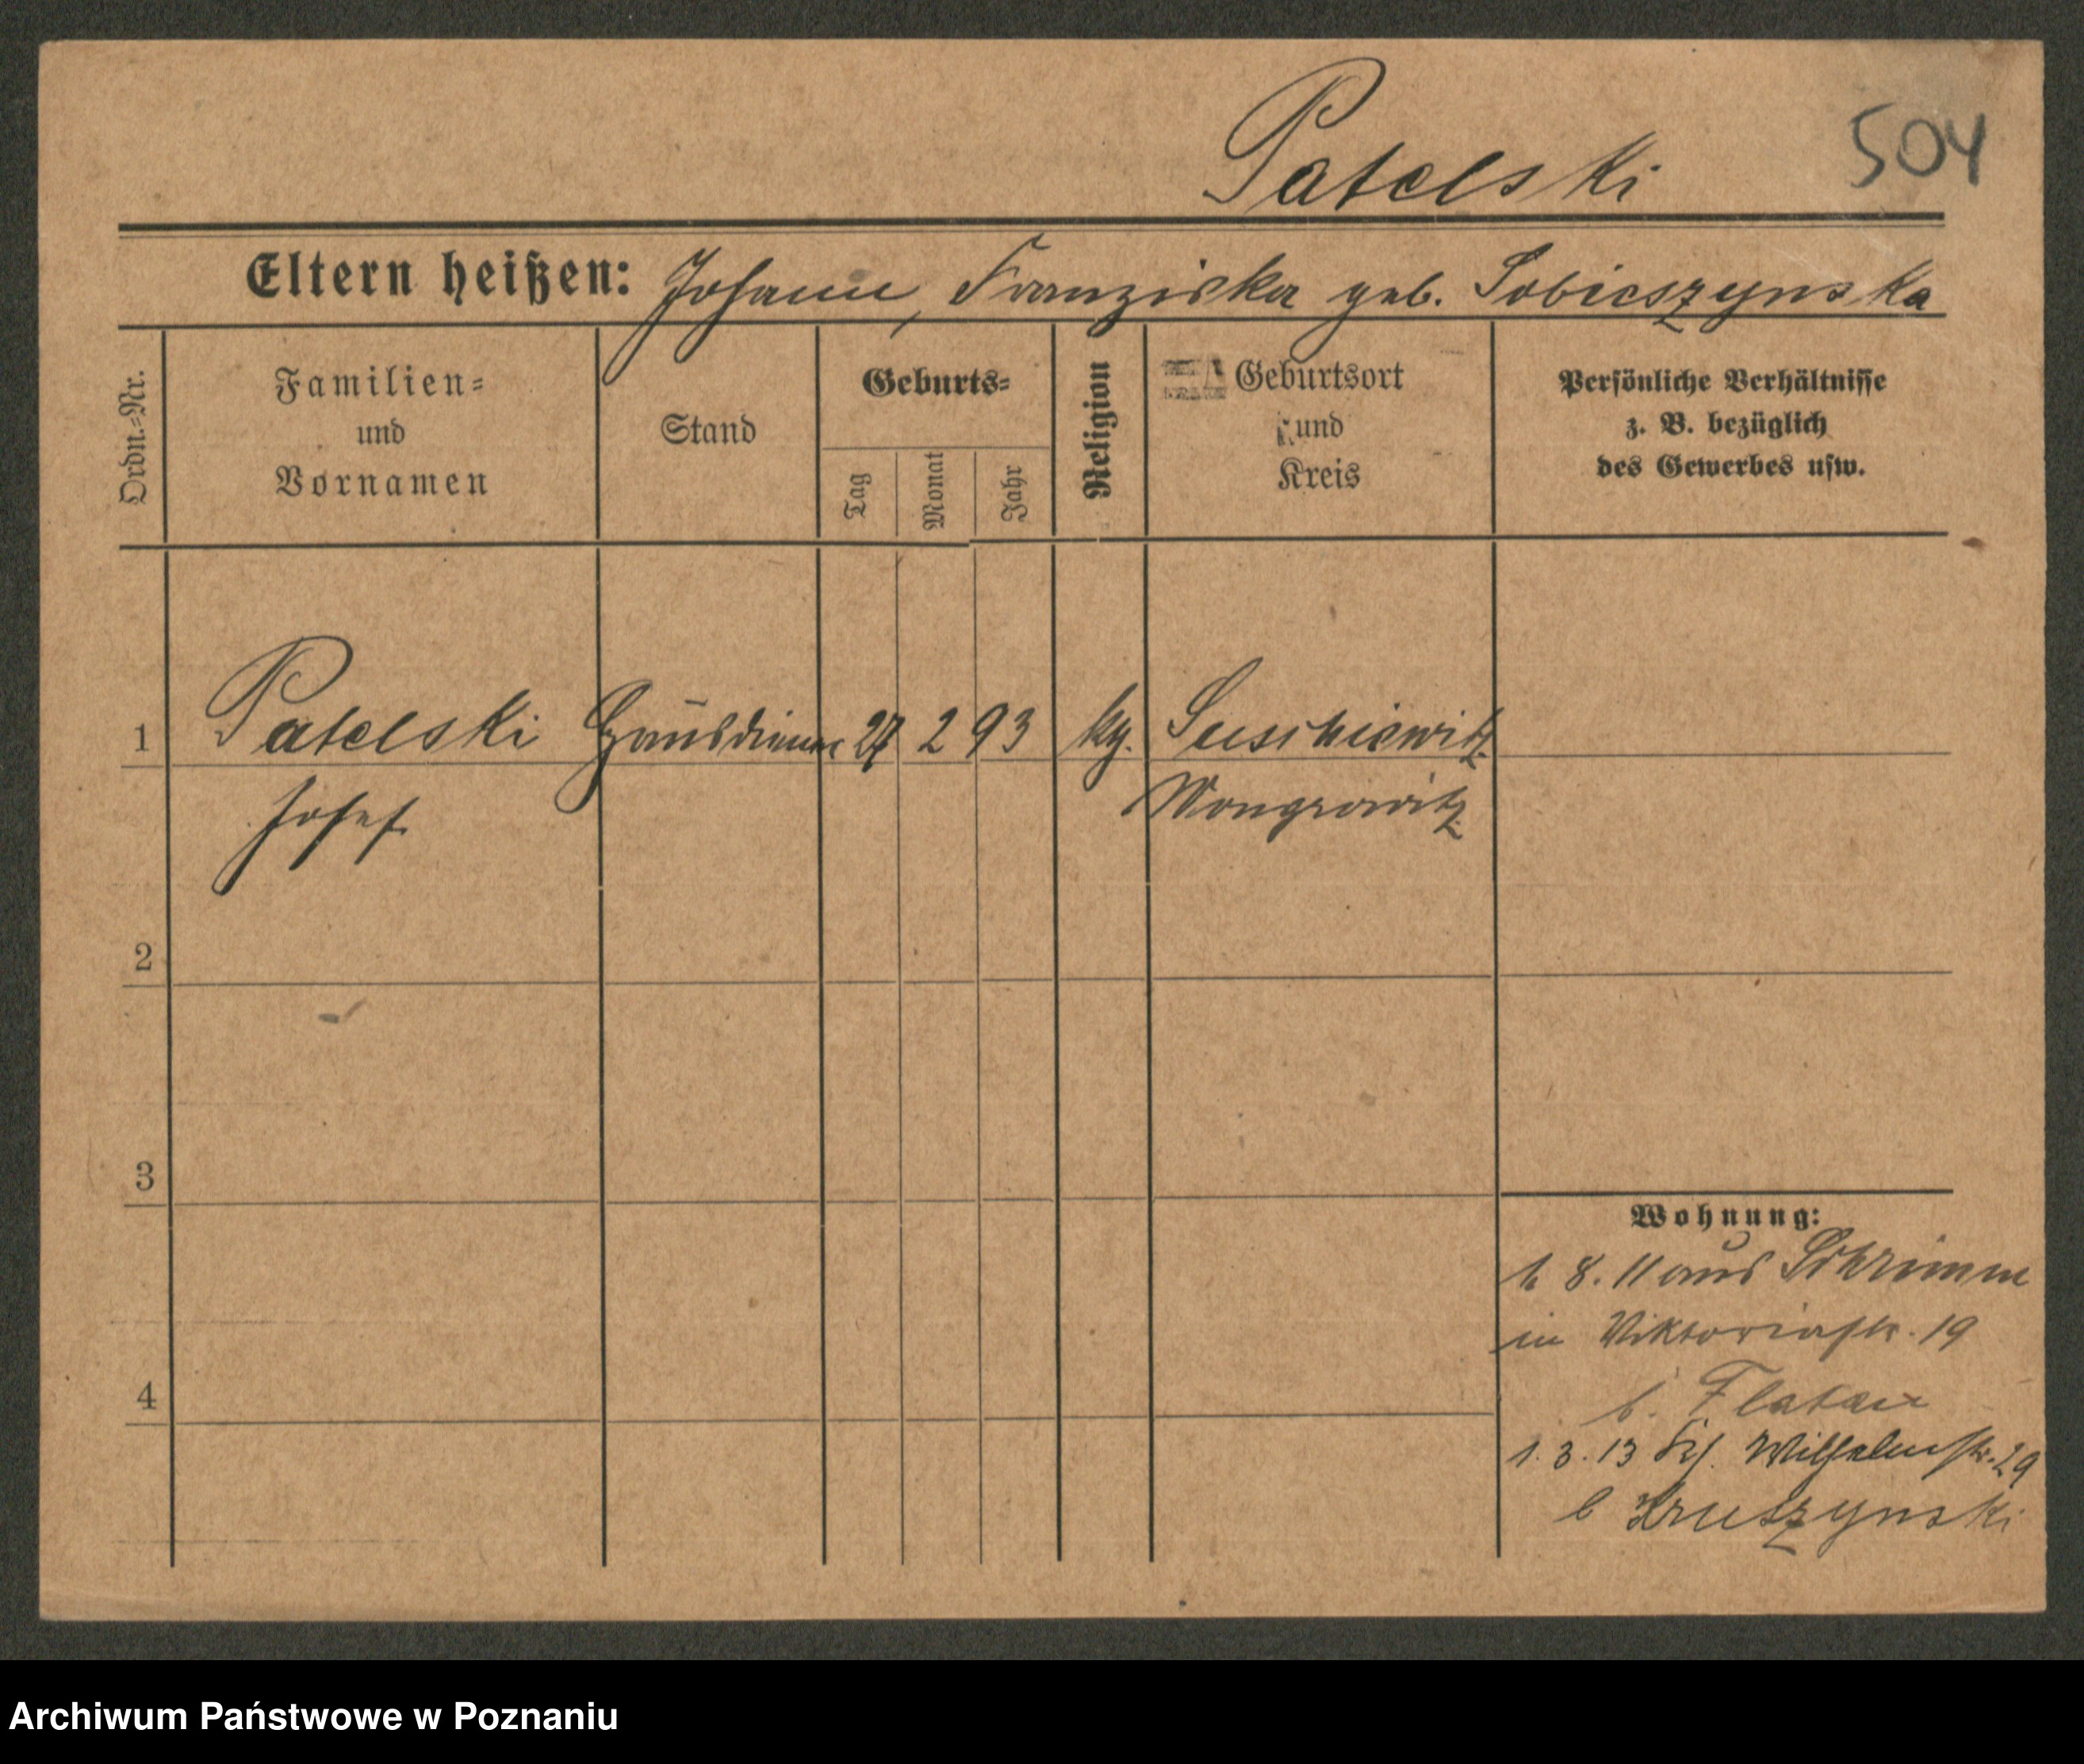 Patelski 504
Eltern heißen: Johann, Franziska geb. Sobieszynska
Ordn.-Nr.
Familien-
und
Vornamen
Stand
Geburts-
Tag
Monat
Jahr
Religion
Geburtsort
und
Kreis
Persönliche Verhältnisse
z. B. bezüglich
des Gewerbes usw.
1 Patelski Hausdiener 27 2 93 kg. Suschiewitz
Josef Wongrowitz
2
3
4
Wohnung:
1. 8. 11 aus Schrimm
in Viktoriastr. 19
b. Flatau
1. 3. 13 Wilhelmstr. 29
b Kruszynski
Archiwum Państwowe w Poznaniu